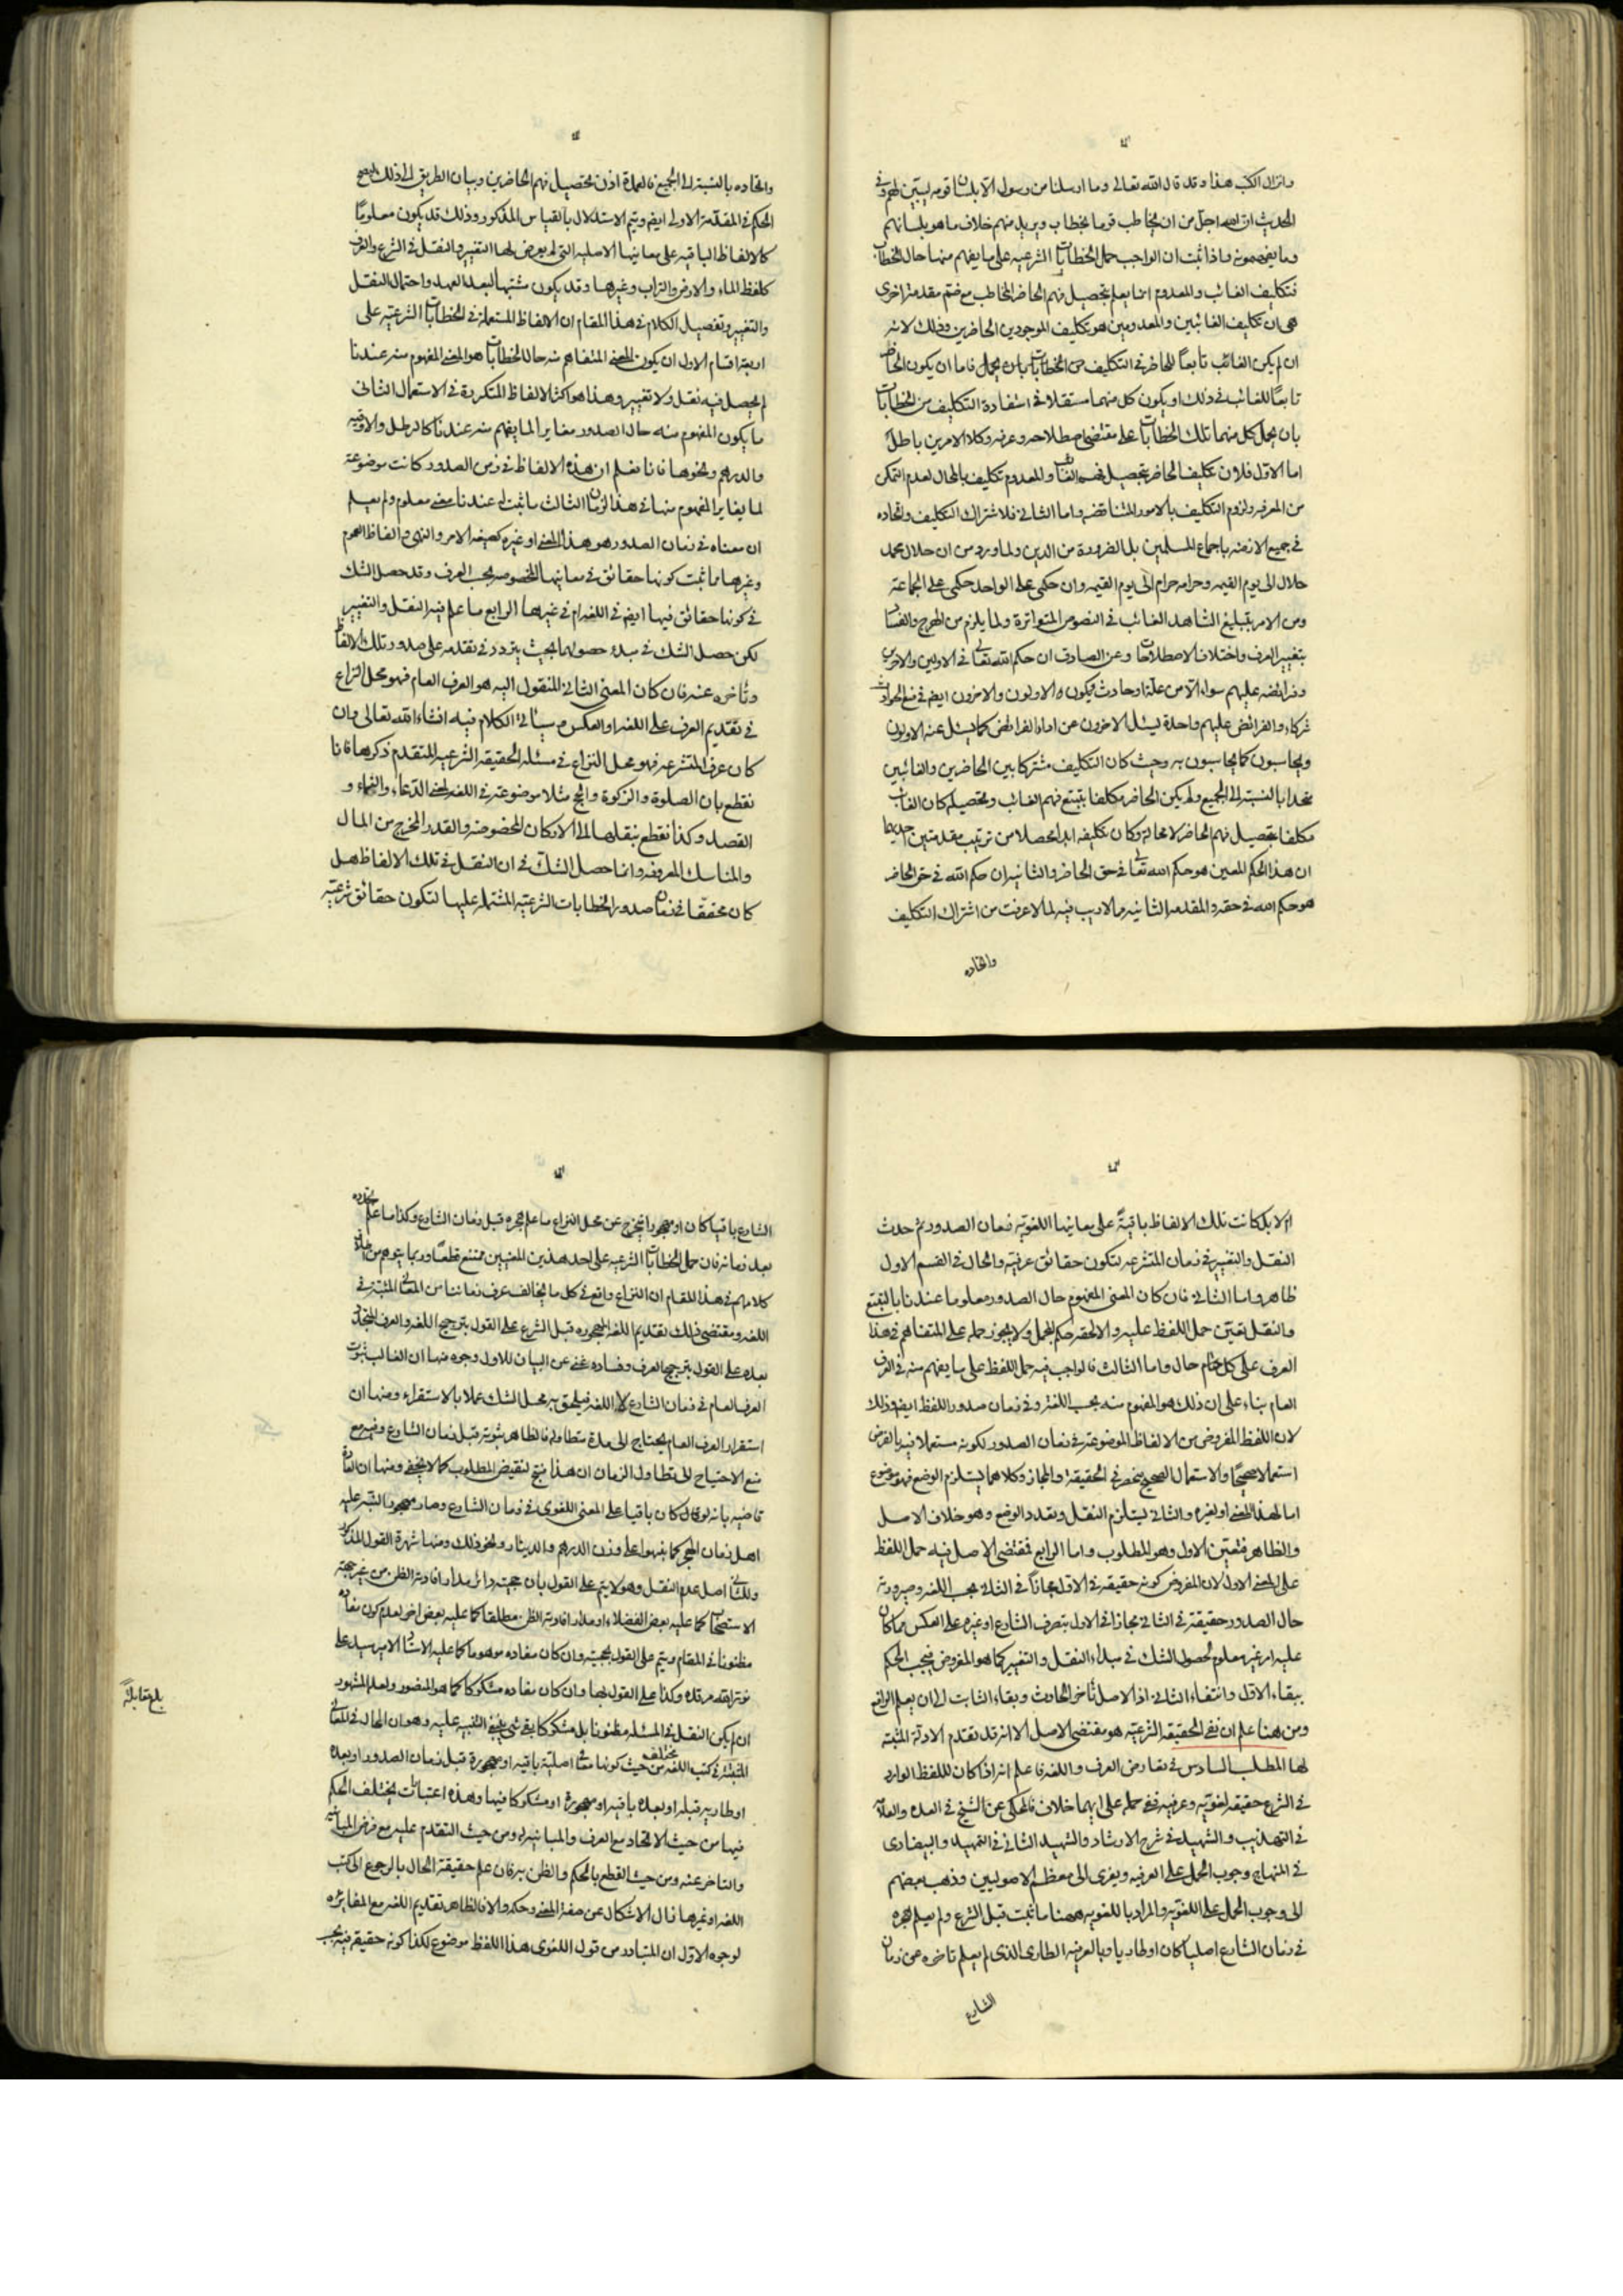 وانزال الكتب هذا وقد قال الله تعالى وما ارسلنا من رسول الا بلسان قومه ليبين لهم وفى
الحديث ان الله اجل من ان يخاطب قوما بخطاب ويريد منهم خلاف ما هو بلسانهم
وما يفهمونه واذا ثبت ان الواجب حمل الخطابات الشرعيه على ما يفهم منها حال الخطاب
فتكليف الغائب والمعدوم انما يعلم بتحصيل فهم الحاضر المخاطب مع ضم مقدمة اخرى
هى ان تكليف الغائبين والمعدومين هو تكليف الموجودين الحاضرين وذلك لانه
ان لم يكن الغائب تابعاً للحاضر فى التكليف من الخطابات بان يحمل فاما ان يكون الحاضر
تابعاً للغائب فى ذلك او يكون كل منهما مستقلا فى استفادة التكليف من الخطابات
بان يحمل كل منهما تلك الخطابات على مقتضى اصطلاحه وعرفه وكلا الامرين باطل
اما الاول فلان تكليف الحاضر بتحصيل فهم الغائب والمعدوم تكليف بالمحال لعدم التمكن
من المعرفه ولزوم التكليف بالامور المتناقضه واما الثانى فلاشتراك التكليف واتحاده
فى جميع الازمنه باجماع المسلمين بل الضرورة من الدين ولما ورد من ان حلال محمد
حلال الى يوم القيمه وحرامه حرام الى يوم القيمه وان حكمى على الواحد حكمى على الجماعة
ومن الامر بتبليغ الشاهد الغائب فى النصوص المتواترة ولما يلزم من الهرج والفساد
بتغيير العرف واختلاف الاصطلاحات وعن الصادق ان حكم الله تعالى فى الاولين والاخرين
وفرائضه عليهم سواء الا من علة او حادث فيكون الاولون والاخرون ايضم فى منع الحوادث
شركاء والفرائض عليهم واحدة يسئل الاخرون عن اداء الفرائض كما يسئل عنه الاولون
ويحاسبون كما يحاسبون به وحيث كان التكليف مشتركا بين الحاضرين والغائبين
متحدا بالنسبة الى الجميع ولم يكن الحاضر مكلفا بتتبع فهم الغائب وتحصيله كان الغائب
مكلفا بتحصيل فهم الحاضر لا محالة وكان تكليفه ابدا محصلا من ترتيب مقدمتين احديهما
ان هذا الحكم المعين هو حكم الله تعالى فى حق الحاضر والثانيه ان حكم الله فى حق الحاضر
هو حكم الله فى حقه والمقدمه الثانيه مما لا ريب فيه لما عرفت من اشتراك التكليف
واتحاده
واتحاده بالنسبة الى الجميع فالعمدة اذن تحصيل فهم الحاضرين وبيان الطريق الى ذلك
الحكم فى المقدمة الاولى ايضم ويتم الاستدلال بالقياس المذكور وذلك قد يكون معلومًا
كالالفاظ الباقيه على معانيها الاصليه التى لم يعرض لها التغيير والنقل فى الشرع والعرف
كلفظ الماء والارض والتراب وغيرها وقد يكون مشتبهاً لبعد العهد واحتمال النقل
والتغيير وتفصيل الكلام فى هذا المقام ان الالفاظ المستعملة فى الخطابات الشرعيه على
اربعة اقسام الاول ان يكون المعنى المتفاهم منه حال الخطابات هو المعنى المفهوم منه عندنا
لم يحصل فيه نقل ولا تغيير وهذا هو اكثر الالفاظ المتكررة فى الاستعمال الثانى
ما يكون المفهوم منه حال الصدور مغايرا لما يفهم منه عندنا كالرطل والاوقيه
والدرهم ونحوها فانا نعلم ان هذه الالفاظ فى زمن الصدور كانت موضوعة
لما يغاير المفهوم منها فى هذا الزمان الثالث ما ثبت له عندنا معنى معلوم ولم يعلم
ان معناه فى زمان الصدور هو هذا المعنى او غيره كصيغه الامر والنهى والفاظ العموم
وغيرها مما ثبت كونها حقائق فى معانيها المخصوصه بحسب العرف وقد حصل الشك
فى كونها حقائق فيها ايضم فى اللغه ام فى غيرها الرابع ما علم فيه النقل والتغيير
لكن حصل الشك فى مبدء حصولهما بحيث يتردد فى تقدمه على صدور تلك الالفاظ
وتأخره عنه فان كان المعنى الثانى المنقول اليه هو العرف العام فهو محل النزاع
فى تقديم العرف على اللغه او العكس وسيأتى الكلام فيه انشاء الله تعالى وان
كان عرف المتشرعه فهو محل النزاع فى مسئله الحقيقه الشرعيه المتقدم ذكرها فانا
نقطع بان الصلوة والزكوة والحج مثلا موضوعة فى اللغه لمعنى الدعاء والنماء و
القصد وكذا نقطع بنقلها الى الاركان المخصوصه والقدر المخرج من المال
والمناسك المعروفه وانما حصل الشك فى ان النقل فى تلك الالفاظ هل
كان محققا فى زمان صدور الخطابات الشرعيه المشتمله عليها لتكون حقائق شرعيه
ام لا بل كانت تلك الالفاظ باقية على معانيها اللغويه زمان الصدور ثم حدث
النقل والتغيير فى زمان المتشرعه لتكون حقائق عرفيه والحال فى القسم الاول
ظاهر واما الثانى فان كان المعنى المفهوم حال الصدور معلوما عندنا بالتتبع
والنقل تعين حمل اللفظ عليه والا لحقه حكم المجمل ولا يجوز حمله على المتفاهم فى هذا
العرف على كل حال واما الثالث فالواجب فيه حمل اللفظ على ما يفهم منه فى العرف
العام بناء على ان ذلك هو المفهوم منه بحسب اللغه وفى زمان صدور اللفظ ايضم وذلك
لان اللفظ المفروض من الالفاظ الموضوعة فى زمان الصدور لكونه مستعملا فيه بالفرض
استعمالا صحيحًا والاستعمال الصحيح منحصر فى الحقيقة والمجاز وكلاهما يستلزم الوضع فهو موضوع
اما لهذا المعنى او لغيره والثانى يستلزم النقل وتعدد الوضع وهو خلاف الاصل
والظاهر فتعين الاول وهو المطلوب واما الرابع فمقتضى الاصل فيه حمل اللفظ
على المعنى الاول لان المفروض كونه حقيقة فى الاول مجازاً فى الثانى بحسب اللغه وصيرورته
حال الصدور حقيقة فى الثانى مجازا فى الاول بتصرف الشارع او غيره على العكس مما كان
عليه امر غير معلوم لحصول الشك فى مبداء النقل والتغيير كما هو المفروض فيجب الحكم
ببقاء الاول وانتفاء الثانى اذ الاصل تأخر الحادث وبقاء الثابت الى ان يعلم الرافع
ومن هنا علم ان نفى الحقيقة الشرعيه هو مقتضى الاصل الا انه قد تقدم الادلة المثبته
لها المطلب السادس فى تعارض العرف واللغه فاعلم انه اذا كان للفظ الوارد
فى الشرع حقيقه لغويه وعرفيه ففى حمله على ايهما خلاف فالمحكى عن الشيخ فى العده والعلامه
فى التهذيب والشهيد فى شرح الارشاد والشهيد الثانى فى التمهيد والبيضاوى
فى المنهاج وجوب الحمل على العرفيه ويعزى الى معظم الاصوليين وذهب بعضهم
الى وجوب الحمل على اللغويه والمراد باللغويه ههنا ما ثبت قبل الشرع ولم يعلم هجره
فى زمان الشارع اصليا كان او طاريا وبالعرفيه الطارى الذى لم يعلم تاخره عن زمان
الشارع
الشارع باقيا كان او مهجورا فيخرج عن محل النزاع ما علم هجره قبل زمان الشارع وكذا ما علم تجدده
بعد زمانه فان حمل الخطابات الشرعيه على احد هذين المعنيين ممتنع قطعًا وربما يتوهم من
كلامهم فى هذا المقام ان النزاع واقع فى كل ما يخالف عرف زماننا من المعانى المثبتة فى
اللغه ومقتضى ذلك تقديم اللغه المهجوره قبل الشرع على القول بترجيح اللغه والعرف المتجدد
بعده على القول بترجيح العرف وفساده غنى عن البيان للاول وجوه منها ان الغالب ثبوت
العرف العام فى زمان الشارع لا اللغه فيلحق به محل الشك عملا بالاستقراء ومنها ان
استقرار العرف العام يحتاج الى مدة متطاوله فالظاهر ثبوته قبل زمان الشارع وفيه مع
منع الاحتياج الى تطاول الزمان ان هذا ينتج لنقيض المطلوب كما لا يخفى ومنها ان العادة
قاضيه بانه لو كان باقيا على المعنى اللغوى فى زمان الشارع وصار مهجورا لنبه عليه
اهل زمان الهجر كما نبهوا على وزن الدرهم والدينار ونحو ذلك ومنها شهرة القول المذكور
وللثانى اصل عدم النقل وهو لا يتم على القول بان حجيته دائر مدار افادته الظن من غير جهة
الاستصحاب كما عليه بعض الفضلاء او مدار افادته الظن مطلقا كما عليه بعض اخر لعدم كون مفاده
مظنونا فى المقام ويتم على القول بحجيته وان كان مفاده موهوما كما عليه الاستاد الامير سيد على
نور الله مرقده وكذا على القول بها وان كان مفاده مشكوكا كما هو المنصور ولعله المشهور
ان لم يكن النقل فى المسئله مظنونا بل مشكوكا بقى شئ ينبغى التنبيه عليه وهو ان الحال فى المعانى
المثبتة فى كتب اللغه يختلف من حيث كونها معانى اصلية باقيه او مهجورة قبل زمان الصدور او بعده
او طاريه قبله او بعده باقيه او مهجورة او مشكوكا فيها وهذه اعتبارات يختلف الحكم
فيها من حيث الاتحاد مع العرف والمباينه له ومن حيث التقدم عليه مع فرض المباينه
والتاخر عنه ومن حيث القطع بالحكم والظن به فان علم حقيقة الحال بالرجوع الى كتب
اللغه او غيرها زال الاشكال عن صفة المعنى وحكمه والا فالظاهر تقديم اللغه مع المغايره
لوجوه الاول ان المتبادر من قول اللغوى هذا اللفظ موضوع لكذا كونه حقيقه فيه بحسب
بلغ مقابلة